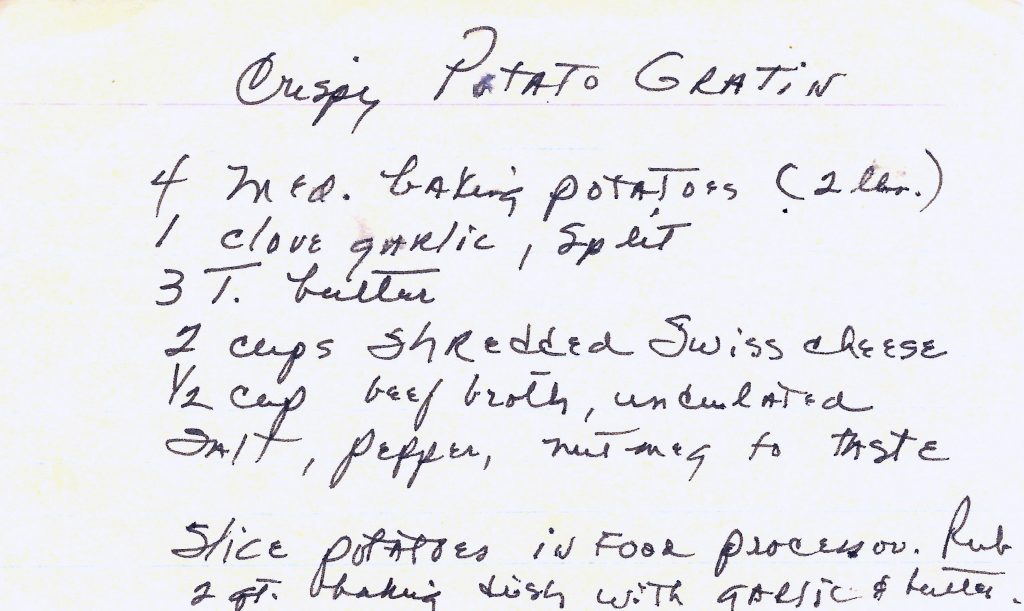 Crispy Potato Gratin
4 Med. baking potatoes (2 lbs.)
1 clove garlic, split
3 T. butter
2 cups shredded Swiss cheese
1/2 cup beef broth,
Salt, pepper, nutmeg to taste
Slice potatoes in food processor. Rub
2 qt. baking dish with garlic & butter.